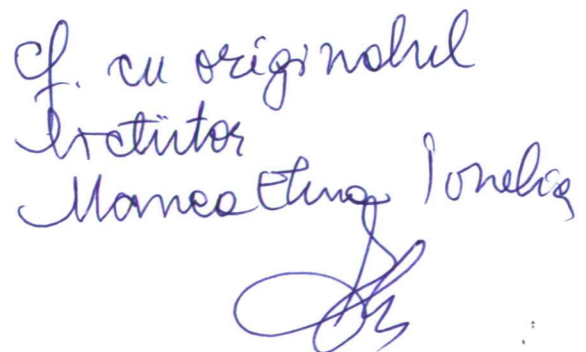 Cf. cu originalul
Institutor
Manea Elena Ionelia